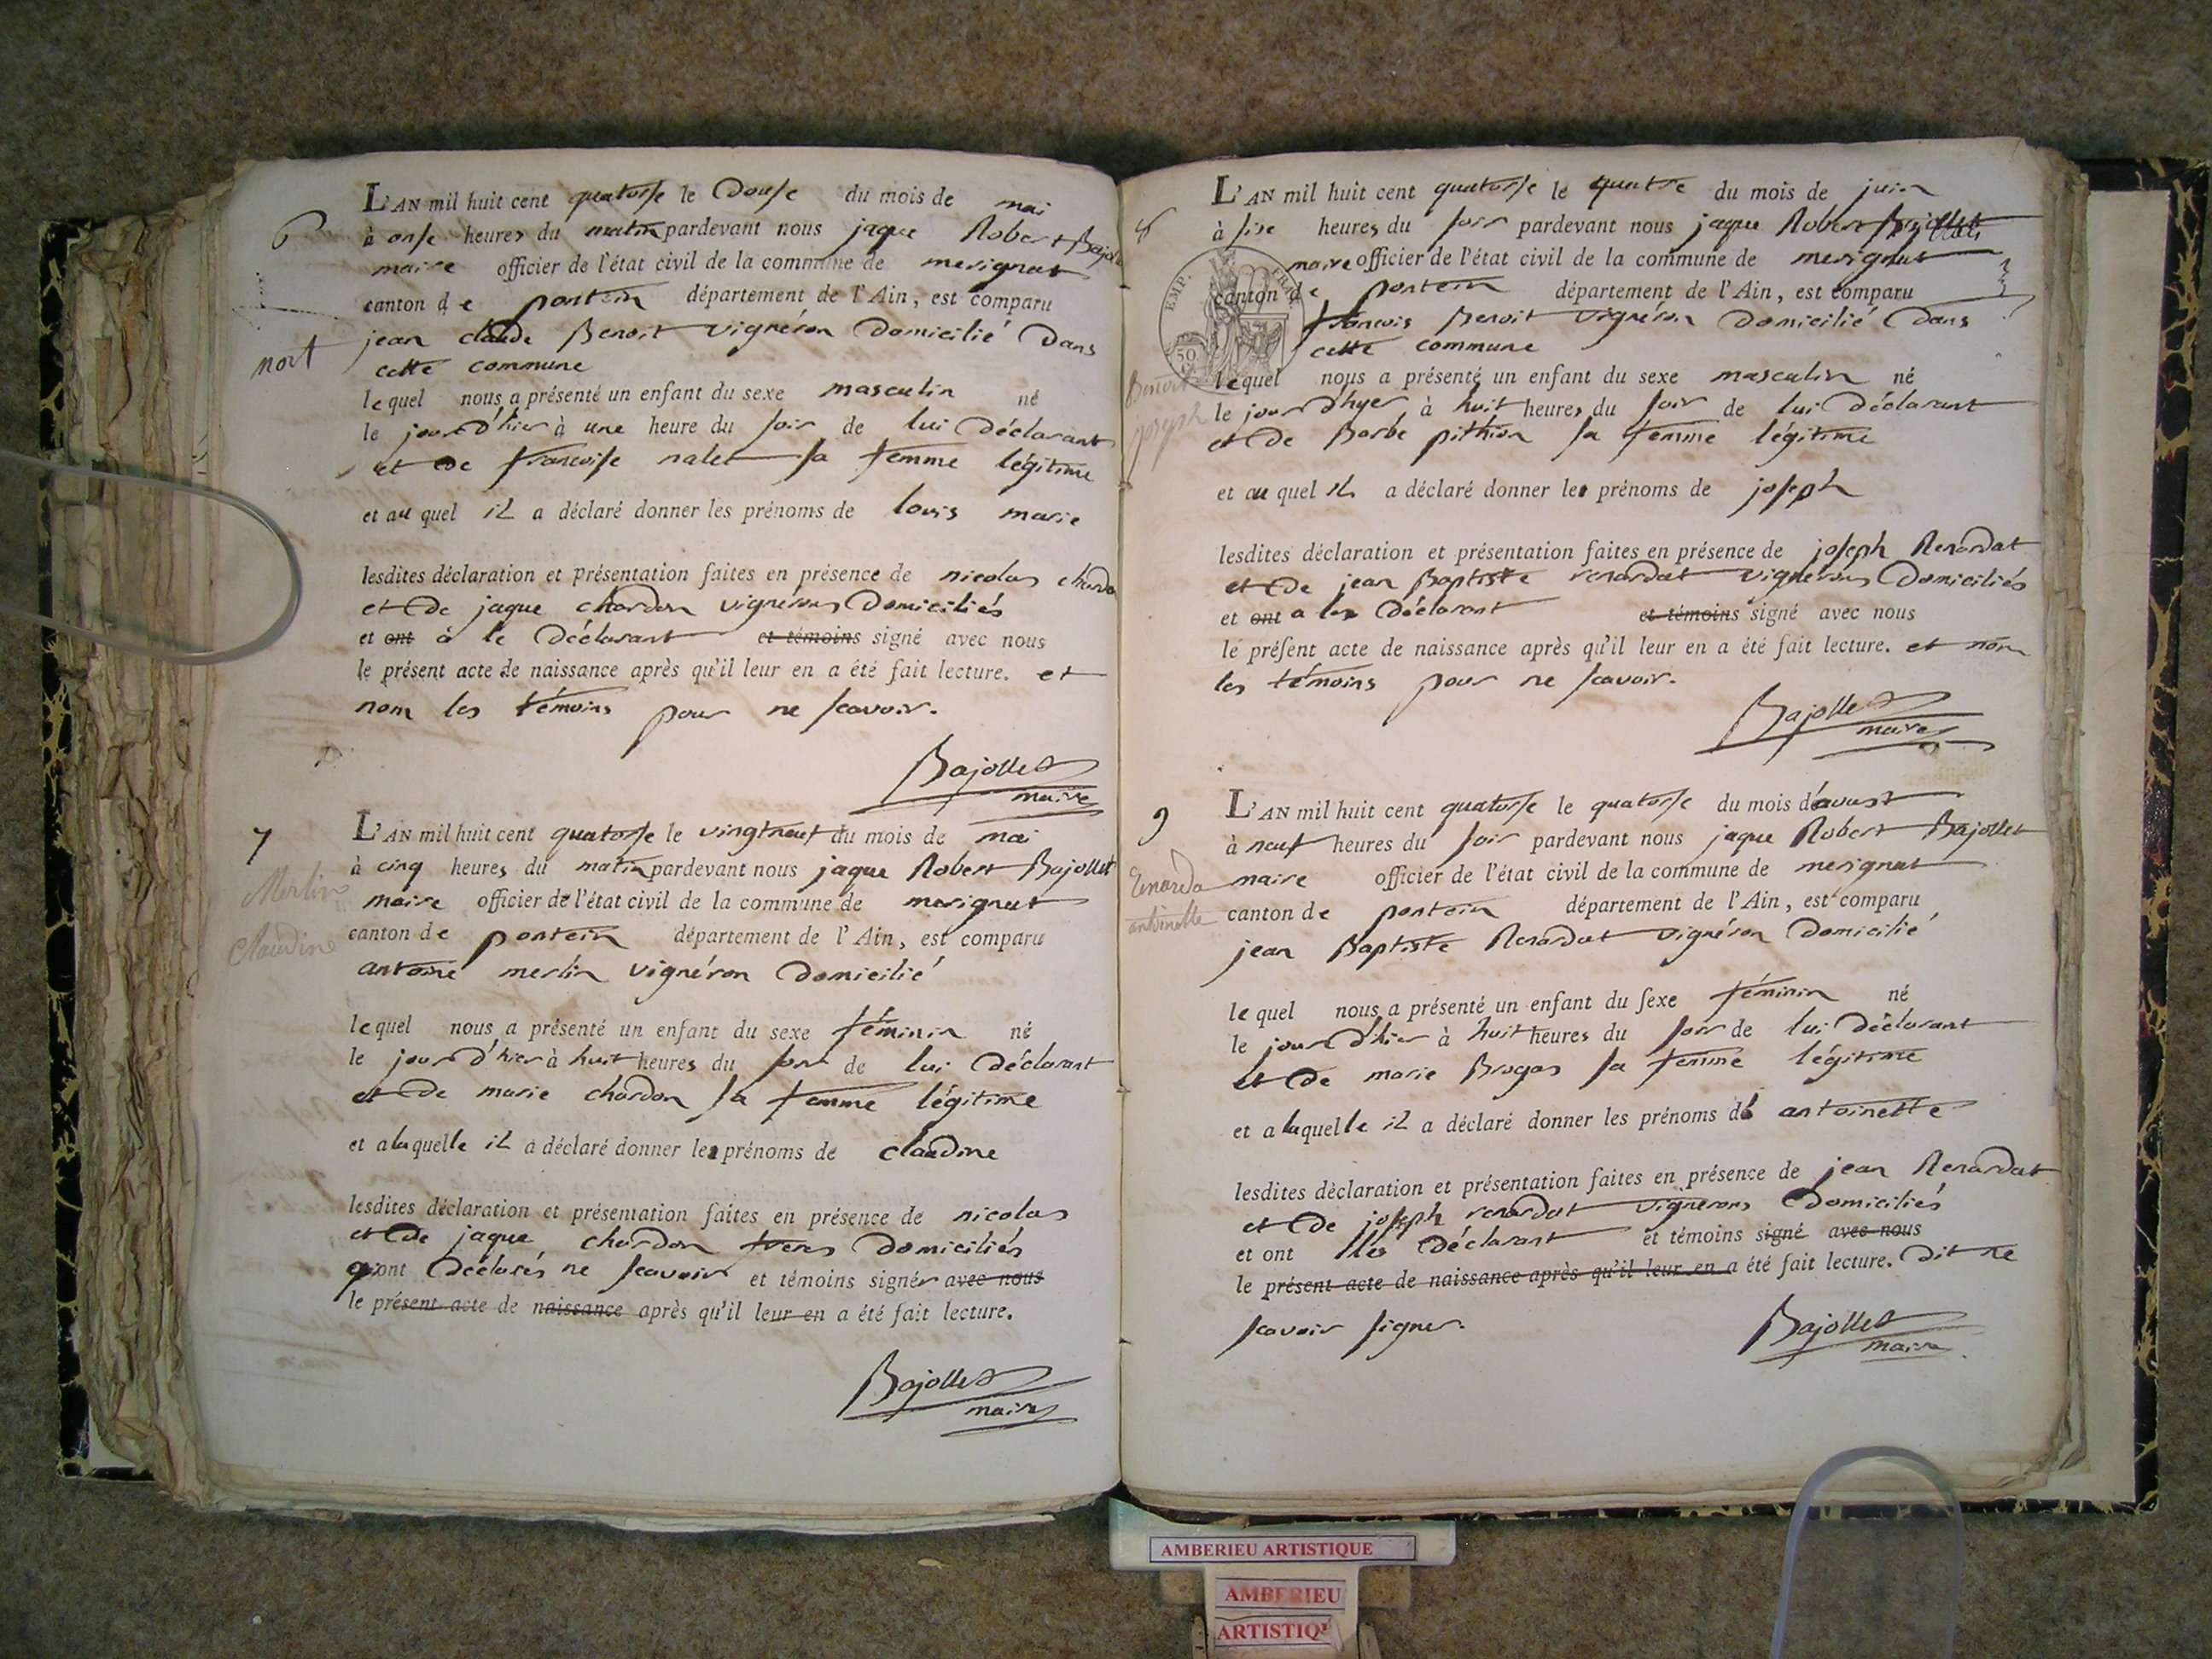 6
L'AN mil huit cent quatorse le Douse du mois de mai
à onse heures du matin pardevant nous jaque Robert Bajollet
maire officier de l'état civil de la commune de merignat
canton de pontein département de l'Ain, est comparu
jean claude Benoit vignéron Domicilié Dans
mort
cette commune
lequel nous a présenté un enfant du sexe masculin né
le jour d'hier à une heure du soir de lui Déclarant
et De francoise nalet sa femme légitime
et au quel il a déclaré donner les prénoms de louis marie
lesdites déclaration et présentation faites en présence de nicolas chardon
et De jaque chardon vignérons Domiciliés
et ont à le Déclarant et témoins signé avec nous
le présent acte de naissance après qu'il leur en a été fait lecture. et
nom les témoins pour ne scavoir.
Bajollet
maire
7
Merlin
claudine
L'AN mil huit cent quatorse le vingtneuf du mois de mai
à cinq heures du matin pardevant nous jaque Robert Bajollet
maire officier de l'état civil de la commune de merignat
canton de pontein département de l'Ain, est comparu
antoine merlin vignéron Domicilié
lequel nous a présenté un enfant du sexe féminin né
le jour d'hier à huit heures du soir de lui Déclarant
et De marie chardon sa femme légitime
et a laquelle il a déclaré donner les prénoms de claudine
lesdites déclaration et présentation faites en présence de nicolas
et De jaque chardon freres Domiciliés
qui ont Déclarés ne scavoir et témoins signer avec nous
le présent acte de naissance après qu'il leur en a été fait lecture.
Bajollet
maire
8
L'AN mil huit cent quatorse le quatre du mois de juin
à sixe heures du soir pardevant nous jaque Robert Bajollet
maire officier de l'état civil de la commune de merignat
EMP. FRAN.
50
canton de pontein département de l'Ain, est comparu
francois Benoit vignéron Domicilié Dans
cette commune
Benoit
joseph
lequel nous a présenté un enfant du sexe masculin né
le jour d'hyer à huit heures du soir de lui Déclarant
et De Barbe pithion sa femme légitime
et au quel il a déclaré donner les prénoms de joseph
lesdites déclaration et présentation faites en présence de joseph Renardat
et De jean Baptiste renardat vignérons Domiciliés
et ont a les Déclarant et témoins signé avec nous
le présent acte de naissance après qu'il leur en a été fait lecture. et nom
les témoins pour ne scavoir.
Bajollet
maire
9
Renarda
antoinette
L'AN mil huit cent quatorse le quatorse du mois d'avust
à neuf heures du soir pardevant nous jaque Robert Bajollet
maire officier de l'état civil de la commune de merignat
canton de pontein département de l'Ain, est comparu
jean Baptiste Renardat vignéron Domicilié
lequel nous a présenté un enfant du sexe féminin né
le jour d'hier à huit heures du soir de lui Déclarant
et De marie Brogas sa femme légitime
et a laquelle il a déclaré donner les prénoms de antoinette
lesdites déclaration et présentation faites en présence de jean Renardat
et De joseph renardat vignérons Domiciliés
et ont les Déclarant et témoins signé avec nous
le présent acte de naissance après qu'il leur en a été fait lecture. Dit ne
scavoir signer.
Bajollet
maire
AMBERIEU ARTISTIQUE
AMBERIEU
ARTISTIQ